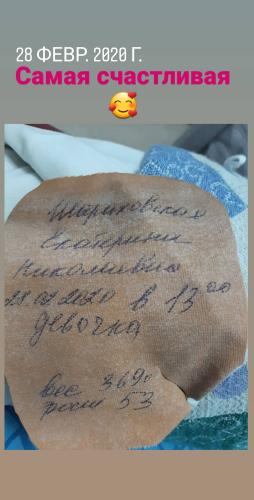 28 ФЕВР. 2020 Г.
Самая счастливая
Штриховская
Екатерина
Николаевна
28.02.2020 в 13 00
Девочка
вес 3690
рост 53